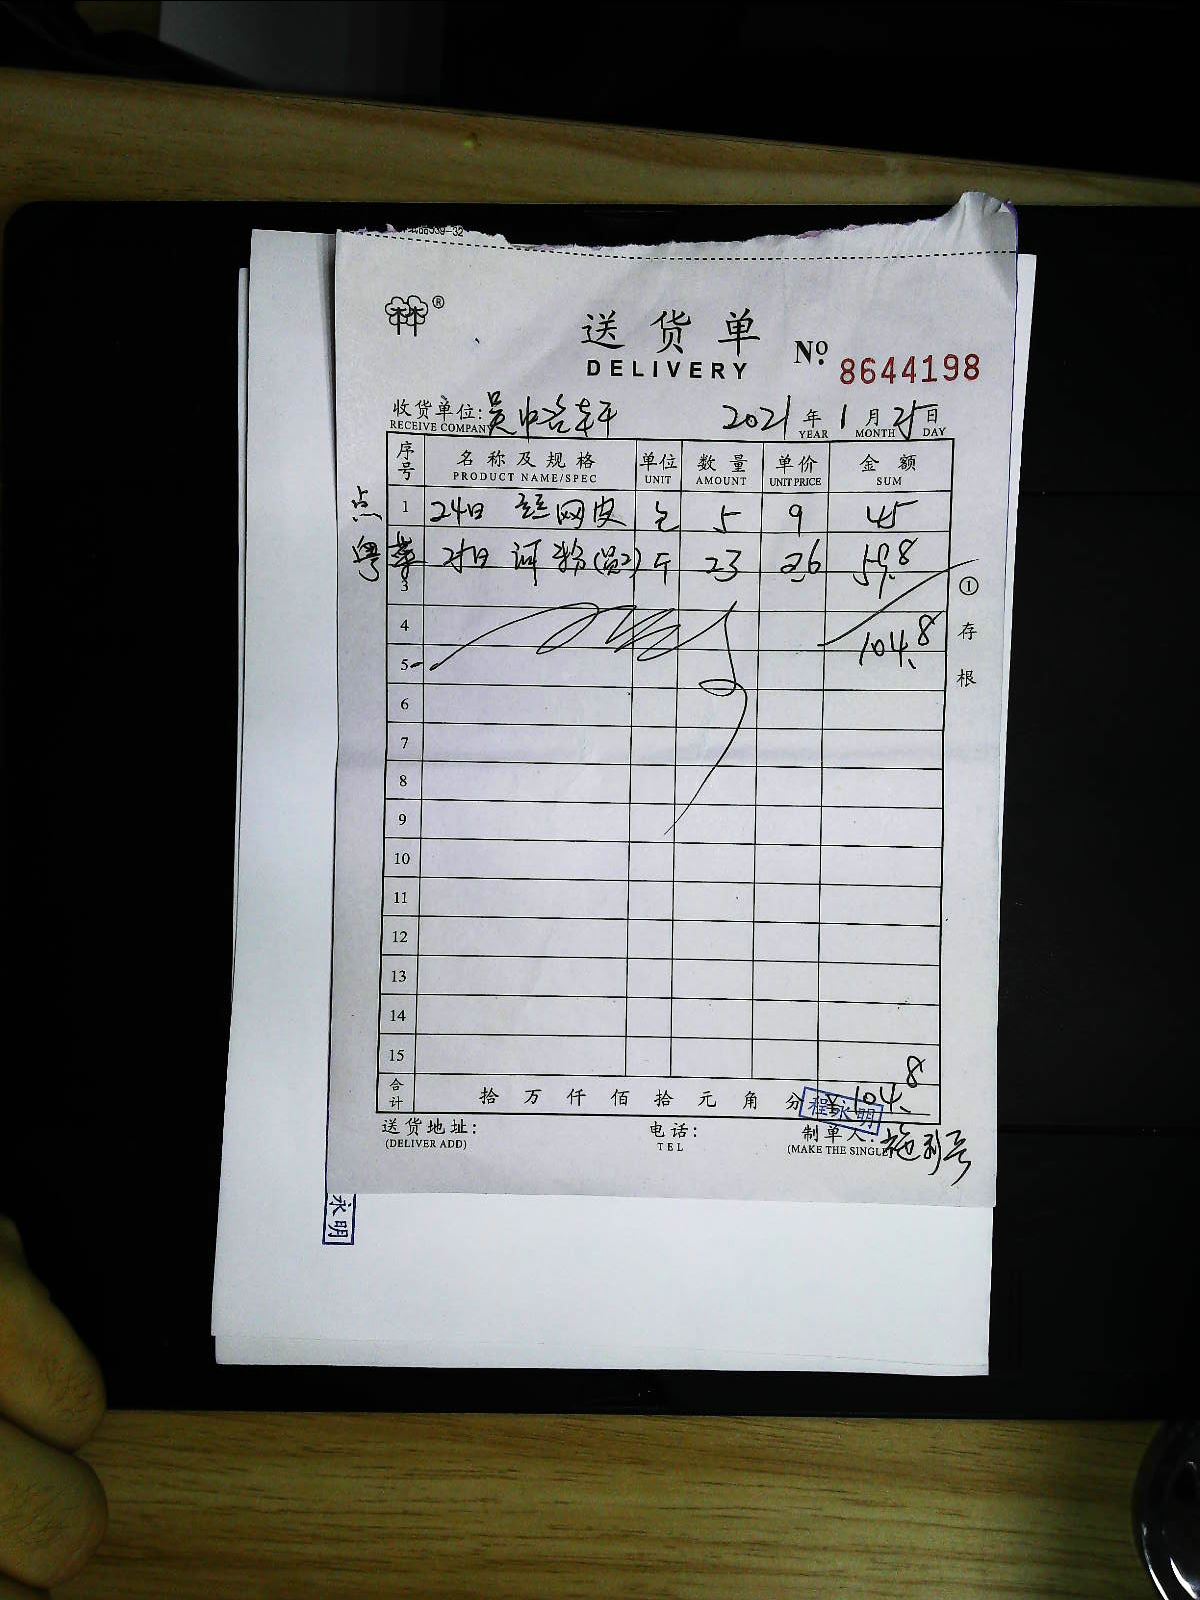 林 ®
送货单
DELIVERY
No. 8644198
收货单位: 吴中
RECEIVE COMPANY
2021 年 1 月 25 日
YEAR MONTH DAY
序号 名称及规格 单位 数量 单价 金额
PRODUCT NAME/SPEC UNIT AMOUNT UNIT PRICE SUM
点 1 24日 丝网皮 包 5 9 45
粤菜 河粉 斤 23 2.6 59.8
3
4 104.8
5
6
7
8
9
10
11
12
13
14
15
合计 拾 万 仟 佰 拾 元 角 分 ¥104.8
程永明
① 存根
送货地址: 电话: 制单人:
(DELIVER ADD) TEL (MAKE THE SINGLE)
永明